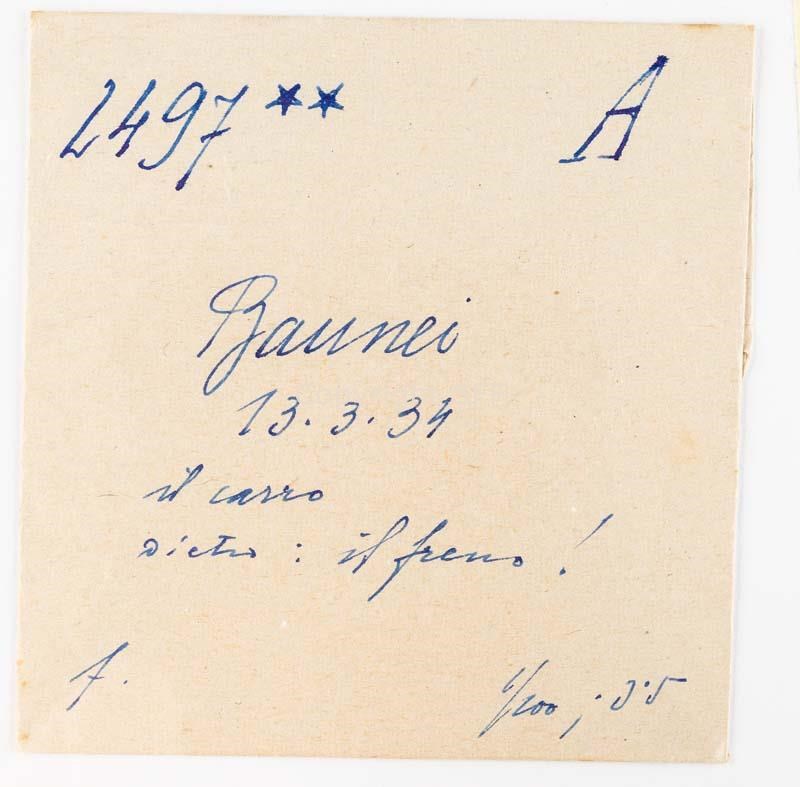 2497 ** A
Baunei
13.3.34
il carro
dietro : il freno !
f.
1/100 ; 3.5